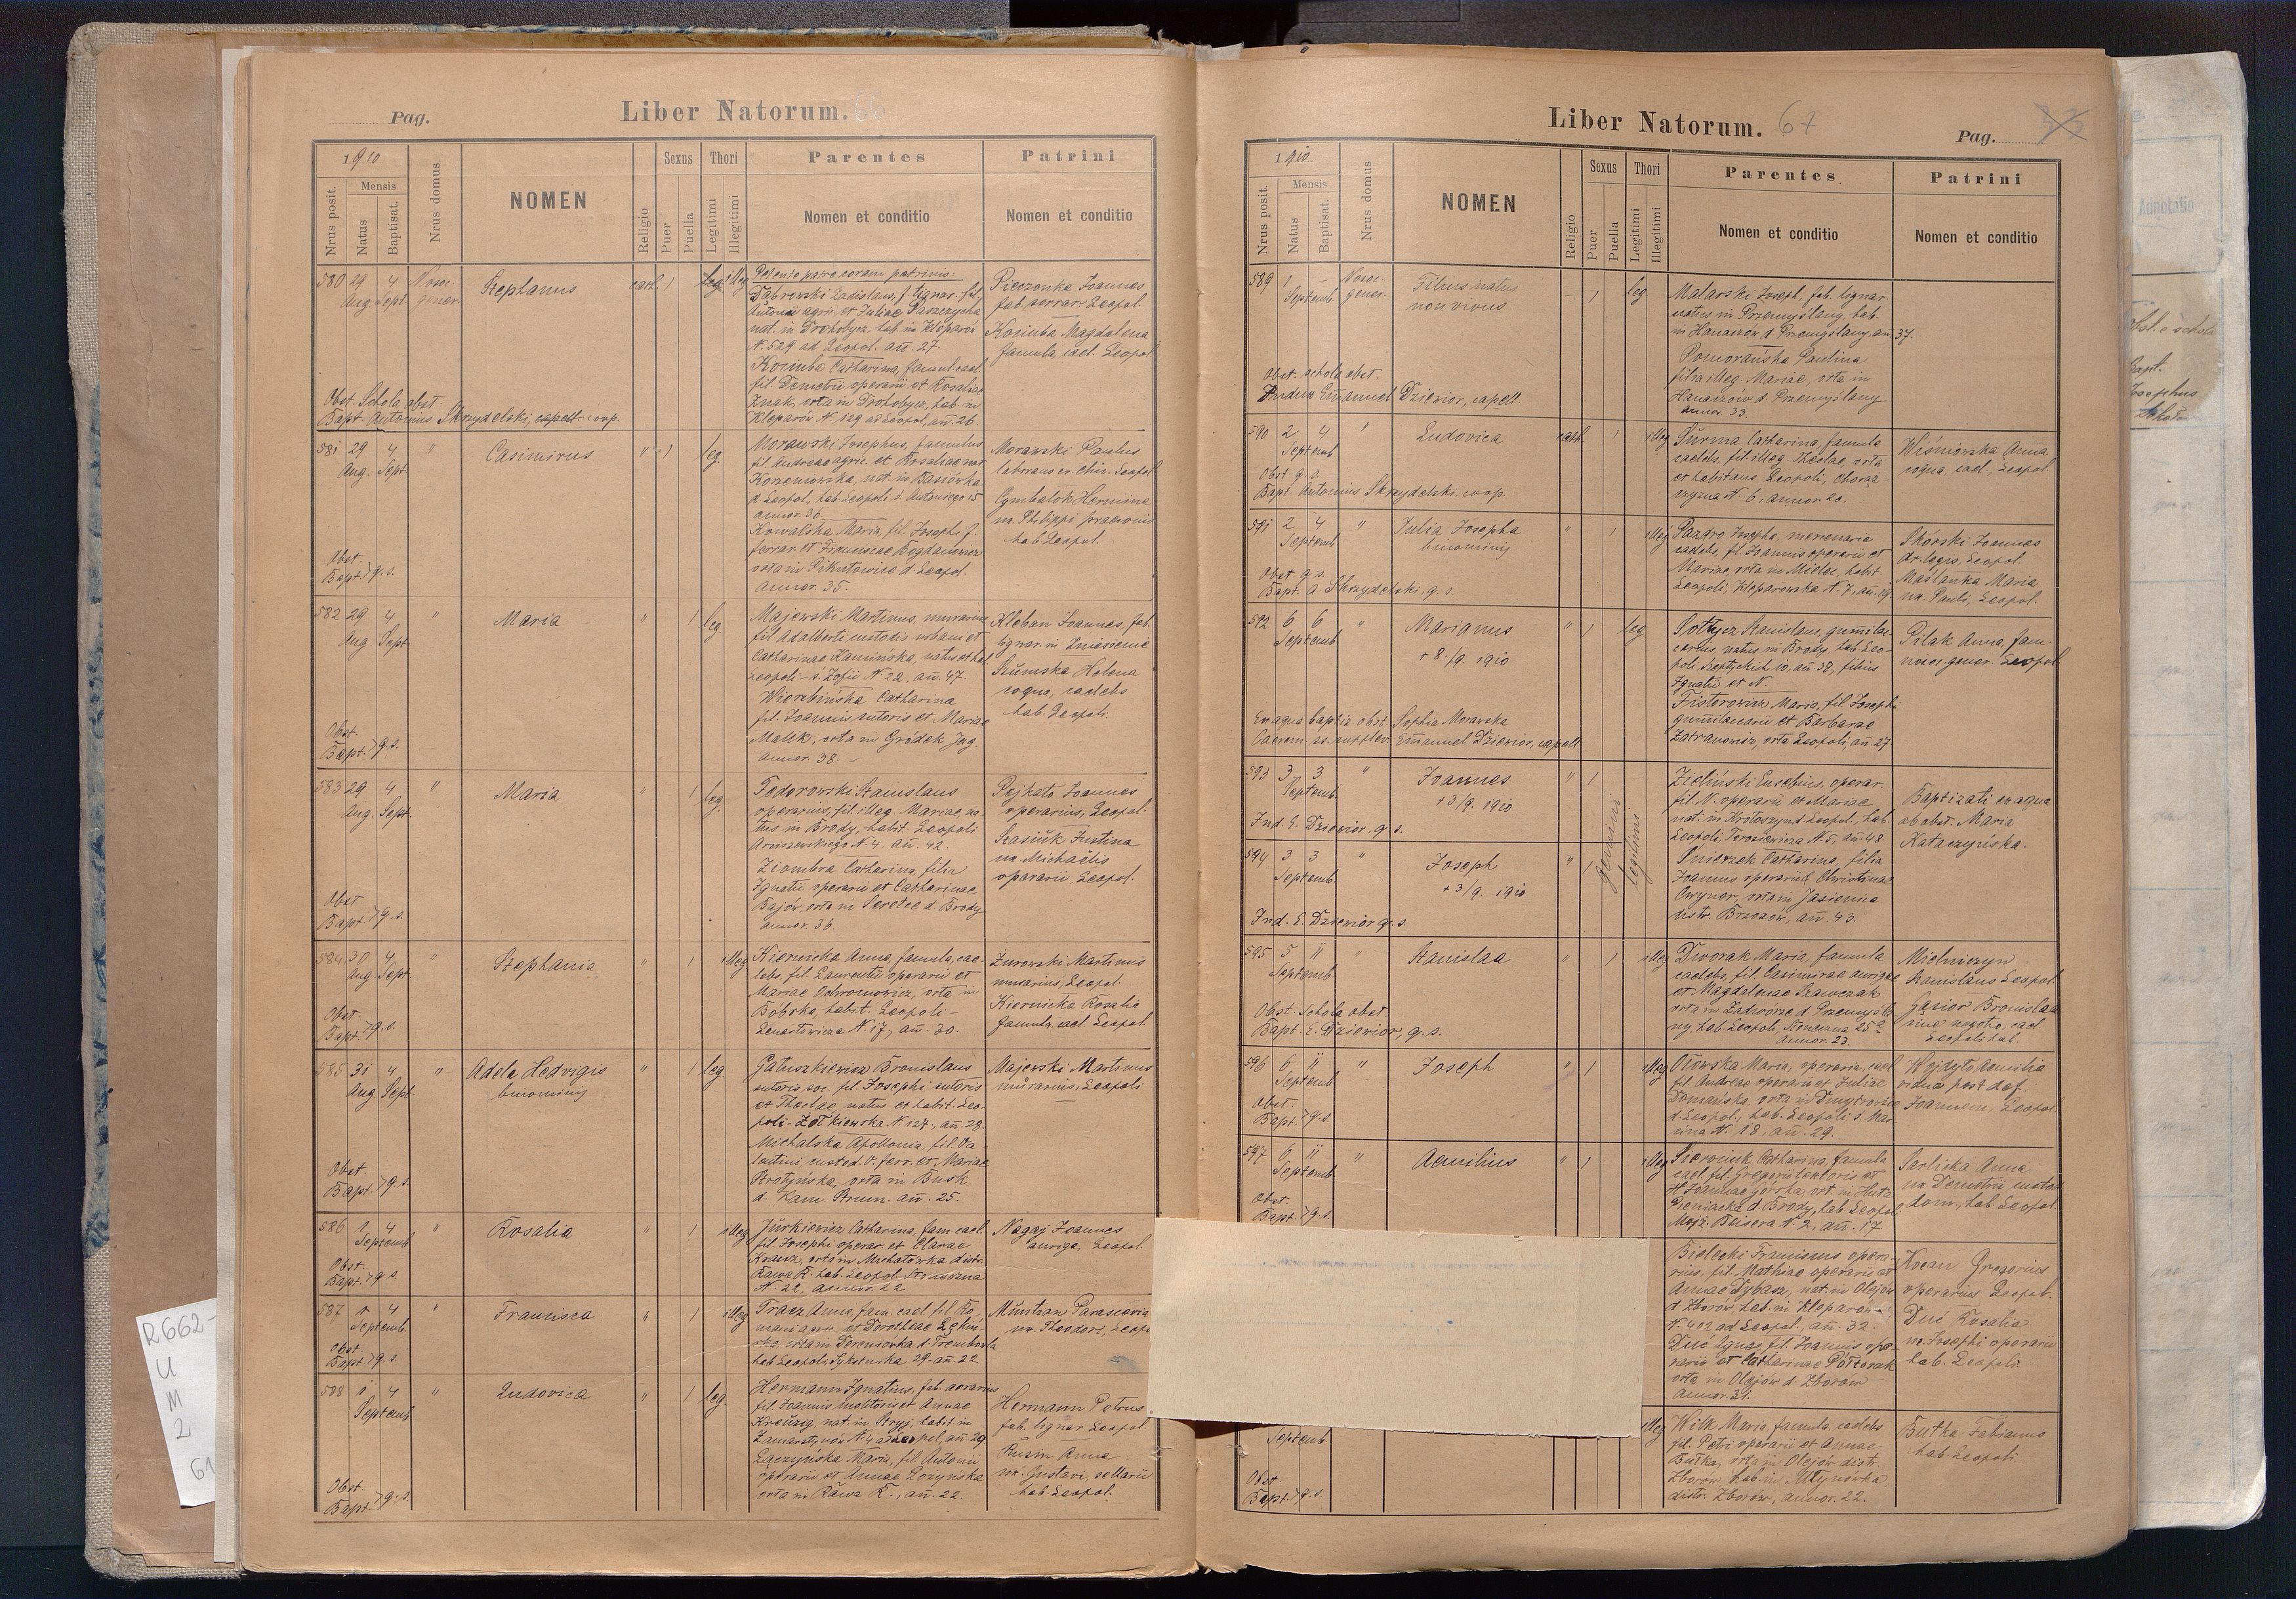 Pag.
Liber Natorum. 66
1910
Nrus posit.
Mensis
Natus
Baptisat.
Nrus domus
NOMEN
Religio
Sexus
Puer
Puella
Thori
Legitimi
Illegitimi
Parentes
Nomen et conditio
Patrini
Nomen et conditio
580 29 4 Nosoc-
Aug. Sept. gener.
Stephanus
cath. 1 illeg
Petente patre coram patrinis:
Dąbrowski Ladislaus, f. lignar. fil.
Antonii agric. et Juliae Paszczycha
nat. in Drohobycz, hab. in Kleparów
N. 529 ad Leopol. an. 27.
Koziuba Catharina, famul. cael.
fil. Demetrii operarii et Rosaliae
Znak, orta in Drohobycz, hab. in
Kleparów N. 529 ad Leopol, an. 26.
Pieczonka Joannes
fab. ferrar. Leopol
Koziuba Magdalena
famula, cael. Leopol.
Obst. Schola obst.
Bapt. Antonius Skrzydelski, capell-coop.
581 29 4 "
Aug. Sept.
Casimirus
" 1 leg.
Morawski Josephus, famulus
fil. Andreae agric. et Rosaliae nat.
Korzeniowska, nat. in Basiówka
d. Leopol, hab. Leopoli ś. Antoniego 15
annor. 36.
Kowalska Maria, fil. Josephi f.
ferrar. et Franciscae Bogdanowicz
orta in Pikułowice d. Leopol.
annor. 35.
Morawski Paulus
Cymbalok Hermina
ux. Philippi praeconis
hab. Leopol.
Obst.
Bapt. > q. s.
582 29 4 "
Aug. Sept.
Maria
" 1 leg.
Majewski Martinus, murarius
fil. Adalberti custodis urbani et
Catharinae Kamińska, natus et hab.
Leopoli ś. Zofii N. 22, an. 47.
Wierzbińska Catharina
fil. Joannis sutoris et Mariae
Malik, orta in Gródek Jag.
annor. 38.
Kleban Joannes, fab.
lignar. in Zniesienie
Szumska Helena
coqua, caelebs
hab. Leopoli.
Obst.
Bapt. > q. s.
583 29 4 "
Aug. Sept.
Maria
" 1 leg.
Fedorowski Stanislaus
operarius, fil. illeg. Mariae, na-
tus in Brody, habit. Leopoli
Arciszewskiego N. 4. an. 42.
Ziombra Catharina, filia
Ignatii operarii et Catharinae
Bajów, orta in Seretec d. Brody
annor. 36.
Pejkata Joannes
operarius, Leopol.
Stasiuk Justina
ux. Michaëlis
operarii Leopol.
Obst.
Bapt. > q. s.
584 30 4 "
Aug. Sept.
Stephania
" 1 illeg
Kiernicka Anna, famula, cae-
lebs, fil. Laurentii operarii et
Mariae Ochromowicz, orta in
Bóbrka, habit. Leopoli-
Lenartowicza N. 17, an. 30.
Żurowski Martinus
murarius, Leopol.
Kiernicka Rosalia
famula, cael. Leopol.
Obst.
Bapt. > q. s.
585 31 4 "
Aug. Sept.
Adela Hedvigis
binominis
" 1 leg.
Gałuszkiewicz Bronislaus
sutoris soc. fil. Josephi sutoris
et Theclae natus et habit. Leo-
poli-Żółkiewska N. 127, an. 28.
Michalska Apollonia, fil. Va-
lentini custod. v. ferr. et Mariae
Strotyńska, orta in Busk
d. Kam. Strum. an. 25.
Majewski Martinus
murarius, Leopoli
Obst.
Bapt. > q. s.
586 1 4 "
Septemb.
Rosalia
" 1 illeg
Jurkiewicz Catharina, fam. cael.
fil. Josephi operar. et Clarae
Krausz, orta in Michałówka distr.
Rawa R. hab. Leopol-Słoneczna
N. 22, annor. 22.
Nagaj Joannes
auriga, Leopol.
Obst.
Bapt. > q. s.
587 1 4 "
Septemb.
Francisca
" 1 illeg
Tracz Anna, fam. cael. fil. Ro-
mani agric. et Dorotheae
orta in Dereniówka d. Trembowla
hab. Leopoli, Sykstuska 29. an. 22.
Muntian Parascevia
ux. Theodori, Leopol
Obst.
Bapt. > q. s.
588 1 4 "
Septemb.
Ludovica
" 1 leg
Hermann Ignatius, fab. aerarius
fil. Joannis molitoris et Annae
Kreuzig, nat. in Stryj, habit. in
Zamarstynów N. 4 ad Leopol, an. 29
Łączyńska Maria, fil. Antonii
operarii et Annae Łozyńska
orta in Rawa R., an. 22.
Hermann Petrus
fab. lignar. Leopol.
Rusin Anna
ux. Gustavi, sellarii
hab. Leopol.
Obst.
Bapt. > q. s.
Liber Natorum. 67
Pag.
1910.
Nrus posit.
Mensis
Natus
Baptisat.
Nrus domus
NOMEN
Religio
Sexus
Puer
Puella
Thori
Legitimi
Illegitimi
Parentes
Nomen et conditio
Patrini
Nomen et conditio
589 1 - Nosoc-
Septemb. gener.
Filius natus
non vivus
- 1 leg.
Malarski Joseph, fab. lignar.
natus in Przemyślany, hab.
in Hanaczów d. Przemyślany, an. 37.
Pomorańska Paulina
filia illeg. Mariae, orta in
Hanaczów d. Przemyślany
annor. 33.
Obst. schola obst.
Indux. Emanuel Dziewior, capell.
590 2 4 "
Septemb.
Ludovica
cath. 1 illeg
Surma Catharina, famula
caelebs, fil. illeg. Theclae, orta
et habitans Leopoli, Chorąż-
czyzna N. 6, annor. 20.
Wiśniowska Anna
coqua, cael., Leopol
Obst. q. s.
Bapt. Antonius Skrzydelski, coop.
591 2 4 "
Septemb.
Julia Josepha
binominis
" 1 illeg
Pazdro Josepha, mercenaria
caelebs, fil. Joannis operarii et
Mariae, orta in Mielec, habit.
Leopoli, Kleparowska N. 7, an. 19
Skórski Joannes
dr. legis, Leopol.
Maślanka Maria
ux. Pauli, Leopol.
Obst. q. s.
Bapt. A. Skrzydelski, q. s.
592 6 6 "
Septemb.
Marianus
+ 8./9. 1910
" 1 leg
Sołtycz Stanislaus,
natus in Brody, hab. Leo-
poli, Szeptyckich 10, an. 38, filius
Ignatii et N.
Fistorowicz Maria, fil. Josephi
et Barbarae
Zatranowicz, orta Leopoli, an. 27.
Pilak Anna, fam.
nosoc. gener. Leopol.
Ex aqua baptiz. obst. Sophia Morawska
Caerem. ss. supplev. Emanuel Dziewior, capell.
593 3 3 "
Septemb.
Joannes
+ 3./9. 1910
" 1
Gemini
legitimi
Zieliński Eusebius, operar.
fil. N. operarii et Mariae
nat. in Krotoszyn d. Leopol, hab.
Leopoli, Torosiewicza N. 5, an. 48
Śnieżek Catharina, filia
Joannis operarii et Christinae
Cwynar, orta in Jasienica
distr. Brzozów, an. 43.
Baptizati ex aqua
ab obst. Maria
Kataczyńska.
Ind. E. Dziewior, q. s.
594 3 3 "
Septemb.
Joseph
+ 3/9. 1910
" 1
Ind. E. Dziewior q. s.
595 5 11 "
Septemb.
Stanislaa
" 1 illeg
Dworak Maria, famula
caelebs, fil. Casimirae aurigae
et Magdalenae Krawczak
orta in Zadwórze d. Przemyśla-
ny, hab. Leopoli, Słoneczna 25a
annor. 23.
Mielniczyn
Stanislaus Leopol.
Gąsior Bronislaa
sine negotio, cael.
Leopoli hab.
Obst. Schola obst.
Bapt. E. Dziewior, q. s.
596 6 11 "
Septemb
Joseph
" 1 illeg
Orowska Maria, operaria, cael.
fil. Andreae operarii et Juliae
Domańska, orta in Dmytrowice
d. Leopol, hab. Leopoli ś. Mar-
cina N. 18, an. 29.
Wojdyło Aemilia
vidua post def.
Joannem, Leopol.
Obst.
Bapt. > q. s.
597 6 11 "
Septemb
Aemilius
" 1 illeg
Sieroniuk Catharina, famula
cael. fil. Gregorii textoris et
Joannae Górska, ort. in Huta
Pieniacka d. Brody, hab. Leopol,
Meiz. Beisera N. 2. an. 17
Sarlicka Anna
ux. Demetrii custod.
dom., hab. Leopol.
Obst.
Bapt. > q. s.
Bielecki Franciscus opera-
rius, fil. Mathiae operarii et
Annae Dybasz, nat. in Olejów
d. Zborów, hab. in Kleparów
N. 402 ad Leopol., an. 32.
Duć Agnes, fil. Joannis ope-
rarii et Catharinae Półtorak
orta in Olejów d. Zborów
annor. 31.
Kocan Gregorius
operarius Leopol.
Duć Rosalia
ux. Josephi operarii
hab. Leopoli.
Septemb
illeg
Wilk Maria, famula, caelebs
fil. Petri operarii et Annae
Butka, orta in Olejów distr.
Zborów, hab. in
distr. Zborów, annor. 22.
Butka Fabianus
hab. Leopoli.
Obst.
Bapt. > q. s.
R662-
U
M
2
61
Adnotatio
Obst. e schola
Bapt.
Josephus